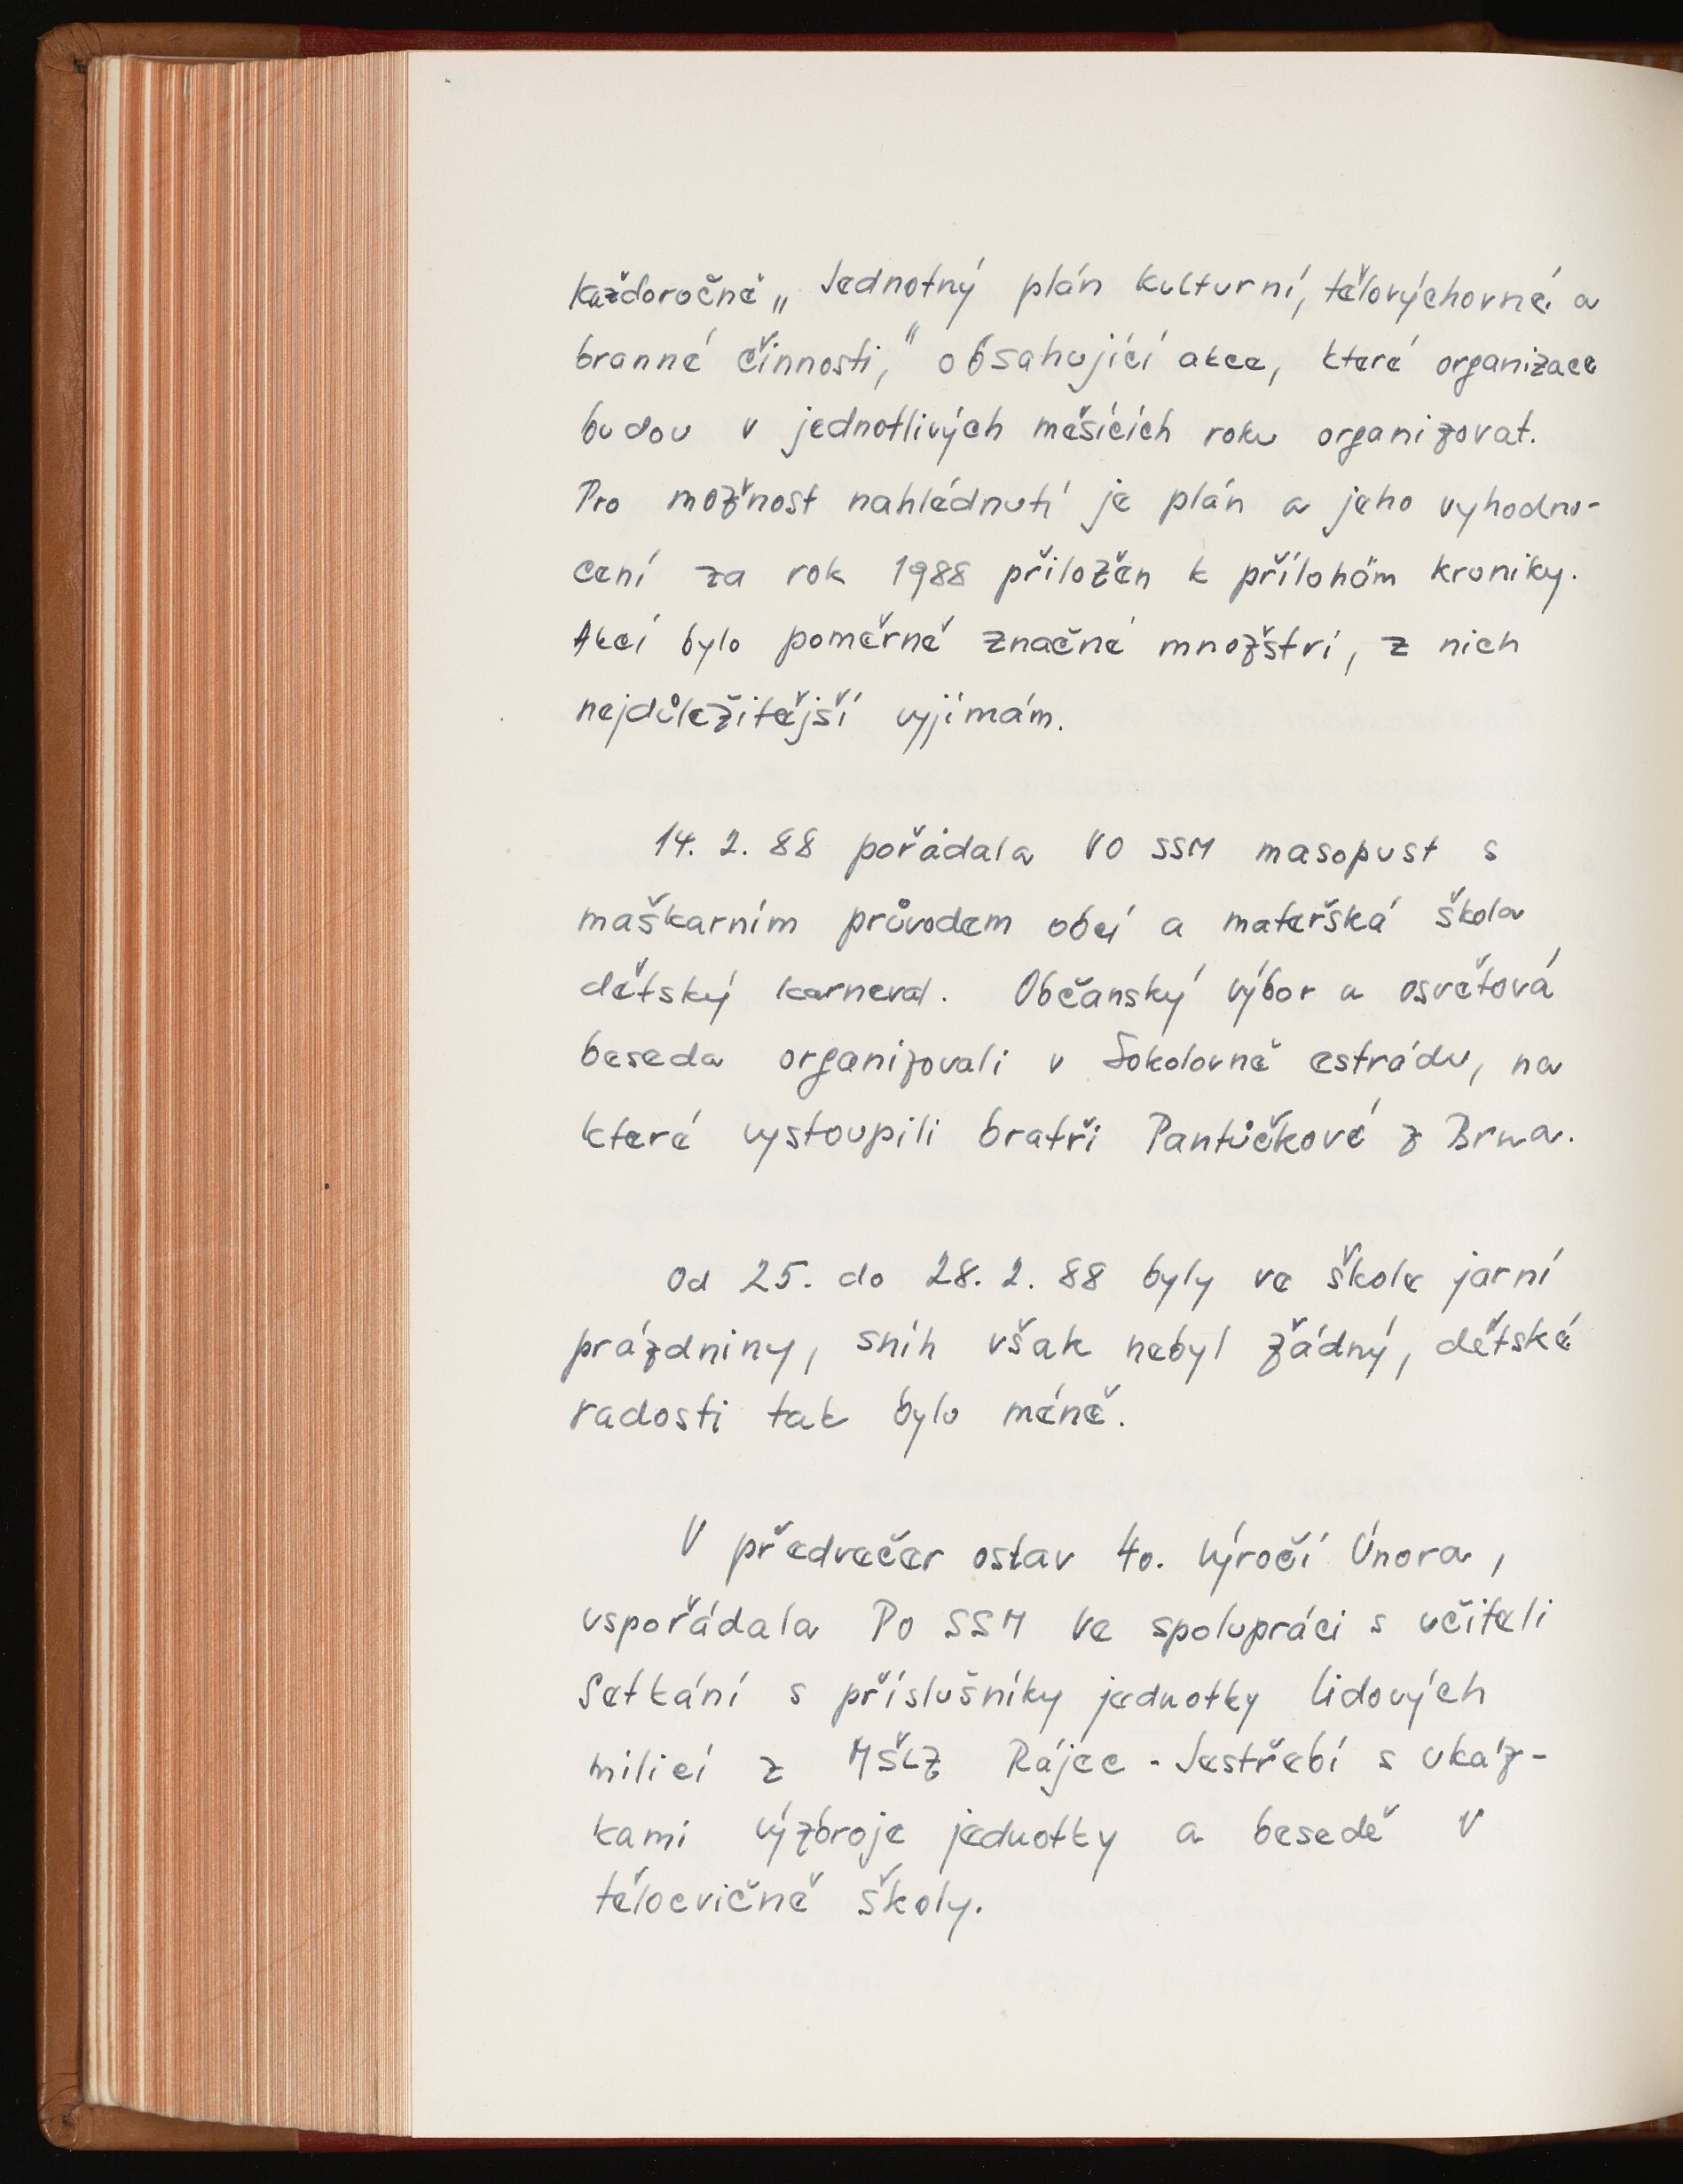 každoročně „Jednotný plán kulturní, tělovýchovné a
branné činnosti," obsahující akce, které organizace
budou v jednotlivých měsících roku organizovat.
Pro možnost nahlédnutí je plán a jeho vyhodno-
cení za rok 1988 přiložen k přílohám kroniky.
Akcí bylo poměrně značné množství, z nich
nejdůležitější vyjímám.
14. 2. 88 pořádala VO SSM masopust s
maškarním průvodem obcí a mateřská škola
dětský karneval. Občanský výbor a osvětová
beseda organizovali v Sokolovně estrádu, na
které vystoupili bratři Pantůčkové z Brna.
Od 25. do 28. 2. 88 byly ve škole jarní
prázdniny, sníh však nebyl žádný, dětské
radosti tak bylo méně.
V předvečer oslav 40. výročí Února,
uspořádala PO SSM ve spolupráci s učiteli
Setkání s příslušníky jednotky lidových
milicí z MŠLZ Rájec - Jestřebí s ukáz-
kami výzbroje jednotky a besedě v
tělocvičně školy.